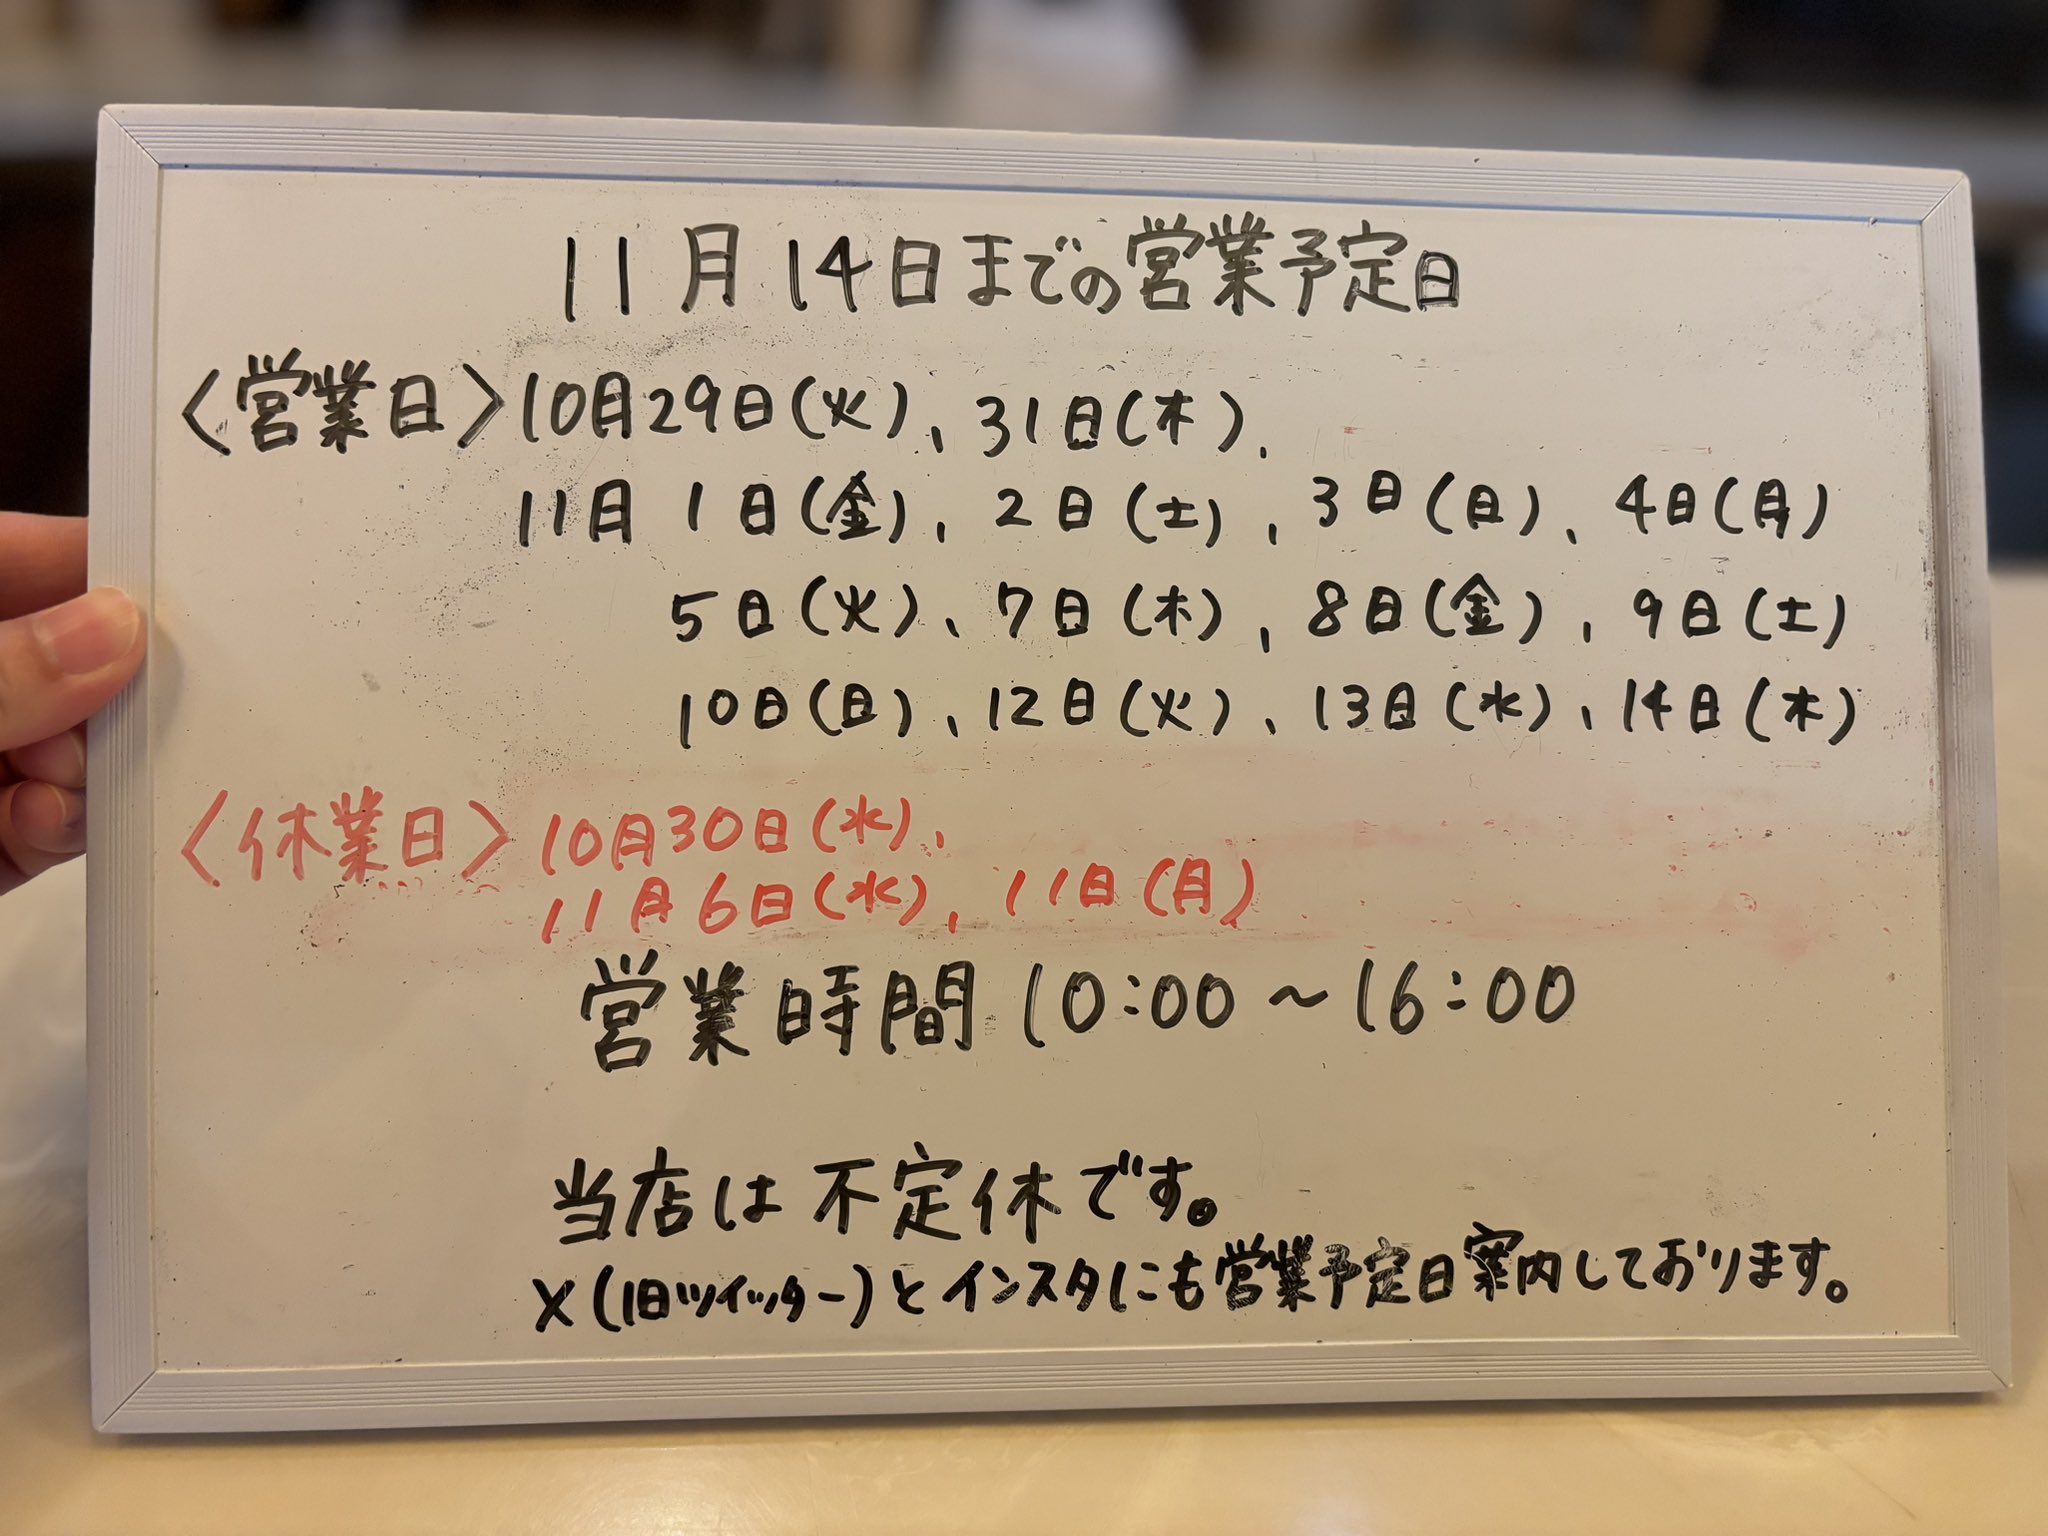 11月14日までの営業予定日
〈営業日〉10月29日(火)、31日(木)、
11月 1日(金)、2日(土)、3日(日)、4日(月)
5日(火)、7日(木)、8日(金)、9日(土)
10日(日)、12日(火)、13日(水)、14日(木)
〈休業日〉10月30日(水)、
11月6日(水)、11日(月)
営業時間 10:00～16:00
当店は不定休です。
X(旧ツイッター)とインスタにも営業予定日案内しております。